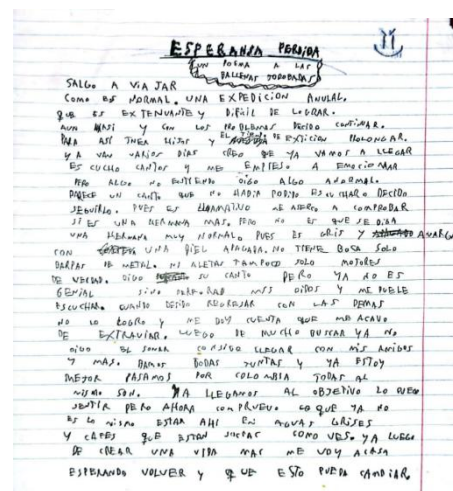 ESPERANZA PERDIDA
UN POEMA A LAS
BALLENAS JOROBADAS
SALGO A VIAJAR
COMO ES NORMAL. UNA EXPEDICION ANUAL.
QUE ES EXTENUANTE Y DIFIIL DE LOGRAR.
AUN HASI Y CON LOS PROBLEMAS DECIDO CONTINUAR.
PARA ASI TNER HIJOS Y EL TIEMPO DE EXTICION PROLONGAR.
Y A VAN VARIOS DIAS CREO QE YA VAMOS A LLEGAR
ES CUCHO CANTOS Y ME EMPIESO A EMOCIONAR
PERO ALGO NO ENTIENDO OIGO ALGO ANORMAL.
PARECE UN CANTO QUE NO HABIA PODIDO ESCUCHAR DECIDO
SEGUIRLO. PUES ES LLAMATIVO ME ACERCO A COMPROBAR
SI ES UNA HERMANA MAS. PERO NO ES QUE SE DIGA
UNA HERMANA MUY NORMAL PUES ES GRIS Y
CON UNA PIEL APAGADA. NO TIENE BOCA SOLO
BARBAS DE METAL. NI ALETAS TAMPOCO SOLO MOTORES
DE VERDAD. OIGO SU CANTO PERO YA NO ES
GENIAL SINO PERFORAR MIS OIDOS Y ME DUELE
ESCUCHAR. CUANDO DECIDO REGRESAR CON LAS DEMAS
NO LO LOGRO Y ME DOY CUENTA QUE ME ACAVO
DE EXTRAVIAR. LUEGO DE MUCHO BUSCAR YA NO
OIGO EL SONAR CONSIGO LLEGAR CON MIS AMIGOS
Y MAS. BAMOS DODAS JUNTAS Y YA ESTOY
MEJOR PASAMOS POR COLOMBIA TODAS AL
MISMO SON. YA LLEGAMOS AL OBJETIVO LO PUEDO
SENTIR PERO AHORA COMPRUEVO QUE YA NO
ES LO MISMO ESTAR AHI EN AGUAS GRISES
Y CAFES QUE ESTAN SUCIAS COMO VES. YA LUEGO
DE CREAR UNA VIDA MAS ME VOY ACASA
ESPERANDO VOLVER Y QUE ESTO PUEDA CAMBIAR.